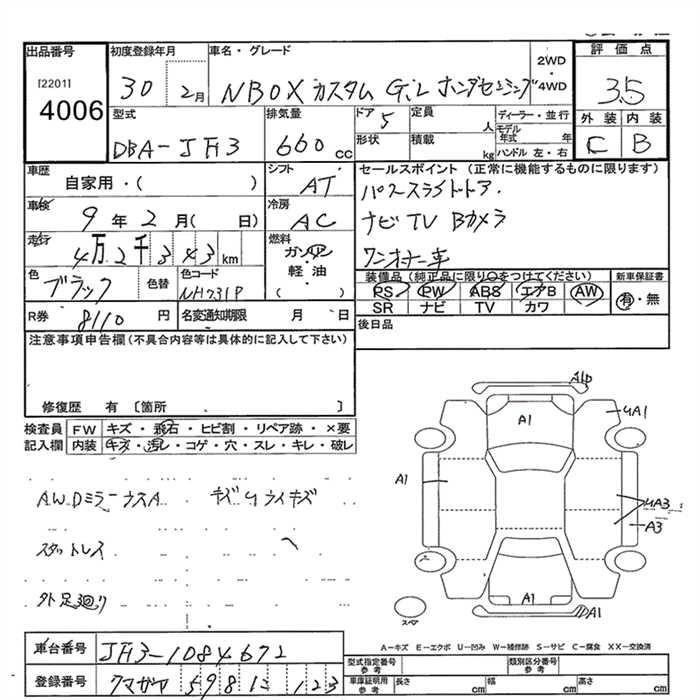 出品番号
[2201]
4006
初度登録年月
30 2月
車名・グレード
NBOXカスタム G・L ホンダセンシング
2WD
・
4WD
評価点
3.5
外装 内装
C B
型式
DBA-JF3
排気量
660 cc
ドア 5
定員 人
ディーラー・並行
モデル年式 年
形状
積載 kg
ハンドル 左・右
車歴
自家用・( )
シフト
AT
セールスポイント(正常に機能するものに限ります)
パワースライドドア.
ナビTV Bカメラ
ワンオーナー車
車検
9年2月( 日)
冷房
AC
走行
4万2千343km
燃料
ガソリン
軽油
( ・ )
色
ブラック
色替
色コード
NH731P
装備品(純正品に限り○をつけてください)
PS PW ABS エアB AW
SR ナビ TV カワ
新車保証書
有・無
R券 8110 円
名変通知期限 月 日
後日品
注意事項申告欄(不具合内容等は具体的に記入して下さい)
修復歴 有 〔箇所 〕
検査員
記入欄
FW キズ・飛石・ヒビ割・リペア跡・×要
内装 キズ・汚レ・コゲ・穴・スレ・キレ・破レ
AWDミラーカスA キズUライキズ
スタットレス
外足廻り
A1P
A1
UA1
A1
UA3
A3
A1
A1
スペア
A-キズ E-エクボ U-凹み W-補修跡 S-サビ C-腐食 XX-交換済
車台番号 JF3-1084672
登録番号
型式指定番号
参考
類別区分番号
参考
車庫証明用
参考
長さ cm
幅 cm
高さ cm